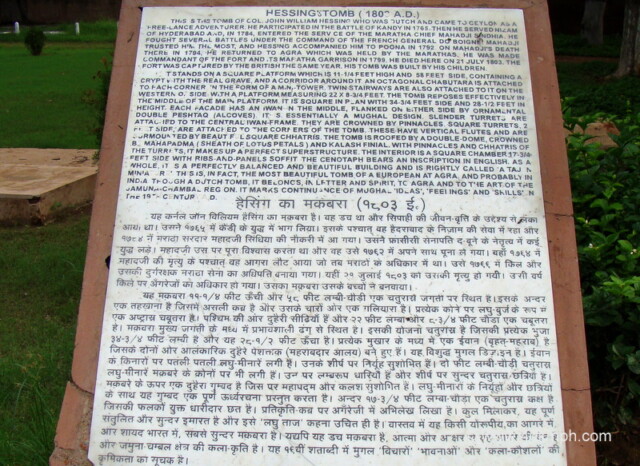 HESSING'S TOMB (1803 A.D.)
THIS IS THE TOMB OF COL. JOHN WILLIAM HESSING WHO WAS DUTCH AND CAME TO CEYLON AS A
FREE-LANCE ADVENTURER. HE PARTICIPATED IN THE BATTLE OF KANDY IN 1765. THEN HE SERVED NIZAM
OF HYDERABAD AND, IN 1784, ENTERED THE SERVICE OF THE MARATHA CHIEF MAHADJI SINDHIA. HE
FOUGHT SEVERAL BATTLES UNDER THE COMMAND OF THE FRENCH GENERAL DE BOIGNE. MAHADJI
TRUSTED HIM, THE MOST, AND HESSING ACCOMPANIED HIM TO POONA IN 1792. ON MAHADJI'S DEATH
THERE IN 1794, HE RETURNED TO AGRA WHICH WAS HELD BY THE MARATHAS. HE WAS MADE
COMMANDANT OF THE FORT AND ITS MARATHA GARRISON IN 1799. HE DIED HERE ON 21 JULY 1803. THE
FORT WAS CAPTURED BY THE BRITISH THE SAME YEAR. HIS TOMB WAS BUILT BY HIS CHILDREN.
IT STANDS ON A SQUARE PLATFORM WHICH IS 11-1/4 FEET HIGH AND 58 FEET SIDE, CONTAINING A
CRYPT WITH THE REAL GRAVE, AND A CORRIDOR AROUND IT. AN OCTAGONAL CHABUTARA IS ATTACHED
TO EACH CORNER IN THE FORM OF A MINI-TOWER. TWIN STAIRWAYS ARE ALSO ATTACHED TO IT ON THE
WESTERN SIDE, WITH A PLATFORM MEASURING 22 X 8-3/4 FEET. THE TOMB REPOSES EFFECTIVELY IN
THE MIDDLE OF THE MAIN PLATFORM. IT IS SQUARE IN PLAN WITH 34-3/4 FEET SIDE AND 28-1/2 FEET IN
HEIGHT. EACH FACADE HAS AN IWAN IN THE MIDDLE, FLANKED ON EITHER SIDE BY ORNAMENTAL
DOUBLE PESHTAQ (ALCOVES). IT IS ESSENTIALLY A MUGHAL DESIGN. SLENDER TURRETS ARE
ATTACHED TO THE CENTRAL IWAN-FRAME. THEY ARE CROWNED BY PINNACLES. SQUARE TURRETS, 2
FEET SIDE, ARE ATTACHED TO THE CORNERS OF THE TOMB. THESE HAVE VERTICAL FLUTES AND ARE
SURMOUNTED BY BEAUTIFUL SQUARE CHHATRIS. THE TOMB IS ROOFED BY A DOUBLE-DOME, CROWNED
BY MAHAPADMA (SHEATH OF LOTUS PETALS) AND KALASH FINIAL. WITH PINNACLES AND CHHATRIS OF
THE TURRETS, IT MAKES UP A PERFECT SUPERSTRUCTURE. THE INTERIOR IS A SQUARE CHAMBER 17-3/4
FEET SIDE WITH RIBS-AND-PANELS SOFFIT. THE CENOTAPH BEARS AN INSCRIPTION IN ENGLISH. AS A
WHOLE, IT IS A PERFECTLY BALANCED AND BEAUTIFUL BUILDING AND IS RIGHTLY CALLED 'A TAJ IN
MINIATURE'. THIS IS, IN FACT, THE MOST BEAUTIFUL TOMB OF A EUROPEAN AT AGRA, AND PROBABLY IN
INDIA. THOUGH A DUTCH TOMB, IT BELONGS, IN LETTER AND SPIRIT, TO AGRA AND TO THE ART OF THE
JAMUNA-CHAMBAL REGION. IT MARKS CONTINUANCE OF MUGHAL 'IDEAS', 'FEELINGS' AND 'SKILLS' IN
THE 19TH CENTURY A.D.
हैसिंग का मकबरा (१८०३ ई.)
यह कर्नल जॉन विलियम हैसिंग का मकबरा है। वह डच था और सिपाही की जीवन-वृत्ति के उद्देश्य से लंका
आया था। उसने १७६५ में कैंडी के युद्ध में भाग लिया। इसके पश्चात् वह हैदराबाद के निज़ाम की सेवा में रहा और
१७८४ में मराठा सरदार महादजी सिंधिया की नौकरी में आ गया। उसने फ्रांसीसी सेनापति द-बूने के नेतृत्व में कई
युद्ध लड़े। महादजी उस पर पूरा विश्वास करता था और वह उसे १७९२ में अपने साथ पूना ले गया। वहाँ १७९४ में
महादजी की मृत्यु के पश्चात् वह आगरा लौट आया जो तब मराठों के अधिकार में था। उसे १७९९ में किले और
उसकी दुर्गरक्षक मराठा सेना का अधिपति बनाया गया। यहीं २१ जुलाई १८०३ को उसकी मृत्यु हो गयी। उसी वर्ष
किले पर अँगरेजों का अधिकार हो गया। उसका मकबरा उसके बच्चों ने बनवाया।
यह मकबरा ११-१/४ फीट ऊँची और ५८ फीट लम्बी-चौड़ी एक चतुरास्र जगती पर स्थित है। इसके अन्दर
एक तहखाना है जिसमें असली कब्र है और उसके चारों ओर एक गलियारा है। प्रत्येक कोने पर लघु-बुर्ज के रूप में
एक अष्टास्र चबूतरा है। पश्चिम की ओर दुहेरी सीढ़ियाँ हैं और २२ फीट लम्बा और ८-३/४ फीट चौड़ा एक चबूतरा
है। मकबरा मुख्य जगती के मध्य में प्रभावशाली ढंग से स्थित है। इसकी योजना चतुरास्र है जिसकी प्रत्येक भुजा
३४-३/४ फीट लम्बी है और यह २८-१/२ फीट ऊँचा है। प्रत्येक मुखार के मध्य में एक ईवान (वृहत-महराब) है
जिसके दोनों ओर आलंकारिक दुहेरे पेशताक (महराबदार आलय) बने हुए हैं। यह विशुद्ध मुगल डिज़ाइन है। ईवान
के किनारों पर पतली पतली लघु-मीनारें लगी हैं। उनके शीर्ष पर निर्यूह सुशोभित हैं। दो फीट लम्बी-चौड़ी चतुरास्र
लघु-मीनारें मकबरे के कोनों पर भी लगी हैं। उन पर लम्बरूप धारियाँ हैं और शीर्ष पर सुन्दर चतुरास्र-छत्रियाँ हैं।
मकबरे के ऊपर एक दुहेरा गुम्बद है जिस पर महापद्म और कलश सुशोभित हैं। लघु-मीनारों के निर्यूहों और छत्रियों
के साथ यह गुम्बद एक पूर्ण ऊर्ध्वरचना प्रस्तुत करता है। अन्दर १७-३/४ फीट लम्बा-चौड़ा एक चतुरास्र कक्ष है
जिसकी फलकों युक्त धारीदार छत है। प्रतिकृति-कब्र पर अँगरेजी में अभिलेख लिखा है। कुल मिलाकर, यह पूर्ण
संतुलित और सुन्दर इमारत है और इसे 'लघु ताज' कहना उचित ही है। वास्तव में यह किसी योरूपीय का, आगरे में
और शायद भारत में, सबसे सुन्दर मकबरा है। यद्यपि यह डच मकबरा है, आत्मा और
और जमुना-चम्बल क्षेत्र की कला-कृति है। यह १९वीं शताब्दी में मुगल 'विचारों' 'भावनाओं' और 'कला-कौशलों' की
क्रमिकता का सूचक है।